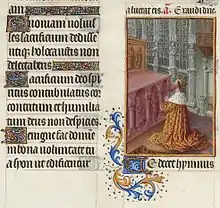 Quoniam si voluis
ses sacrificium dedisse
utiq holocaustis non
delectaberis
Sacrificium deo spi
ritus contribulatus cor
contritum et humilia
tum deus non despicies
Benigne fac domi
in bona voluntate tua
syon ut edificentur
eis A. Exaudi
Te decet hymnus